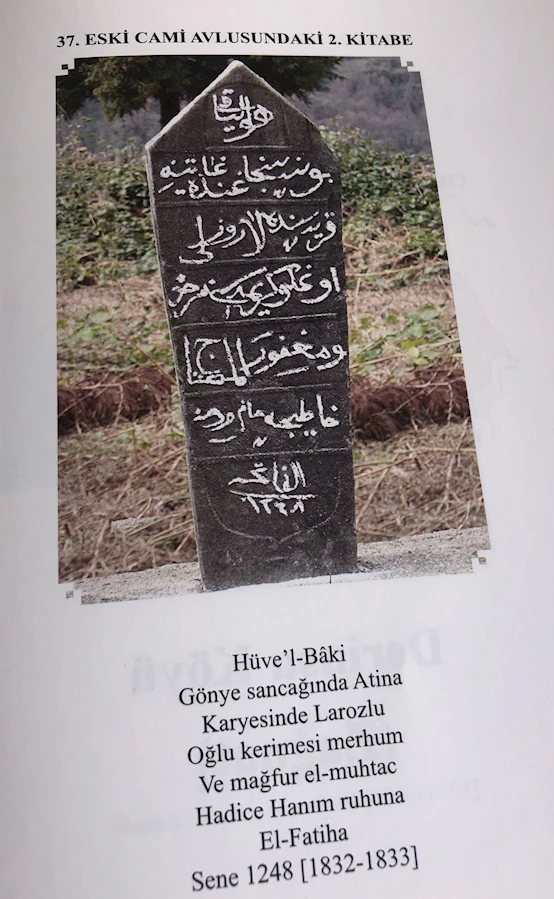 37. ESKİ CAMİ AVLUSUNDAKİ 2. KİTABE
هو الباقی
قریه سنده لاروزلی
اوغلی کریمه سی مرحومه
ومغفور المحتاج
الفاتحه
١٢٤٨
Hüve’l-Bâki
Gönye sancağında Atina
Karyesinde Larozlu
Oğlu kerimesi merhum
Ve mağfur el-muhtac
Hadice Hanım ruhuna
El-Fatiha
Sene 1248 [1832-1833]